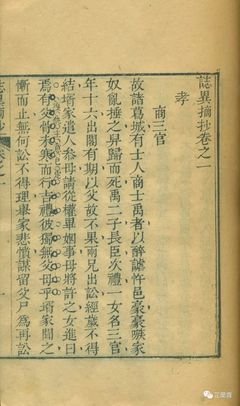 誌異摘抄卷之一
孝
商三官
故諸葛城有士人商士禹者以醉謔忤邑豪豪嗾家
奴亂捶之舁歸而死禹二子長臣次禮一女名三官
年十六出閣有期以父故不果兩兄出訟經歲不得
結壻家遣人參母請從權畢姻事母將許之女進曰
焉有父骨未寒而行吉禮彼獨無父母乎壻家聞之
慚而止無何訟不得理舉家悲憤謀留父尸爲再訟